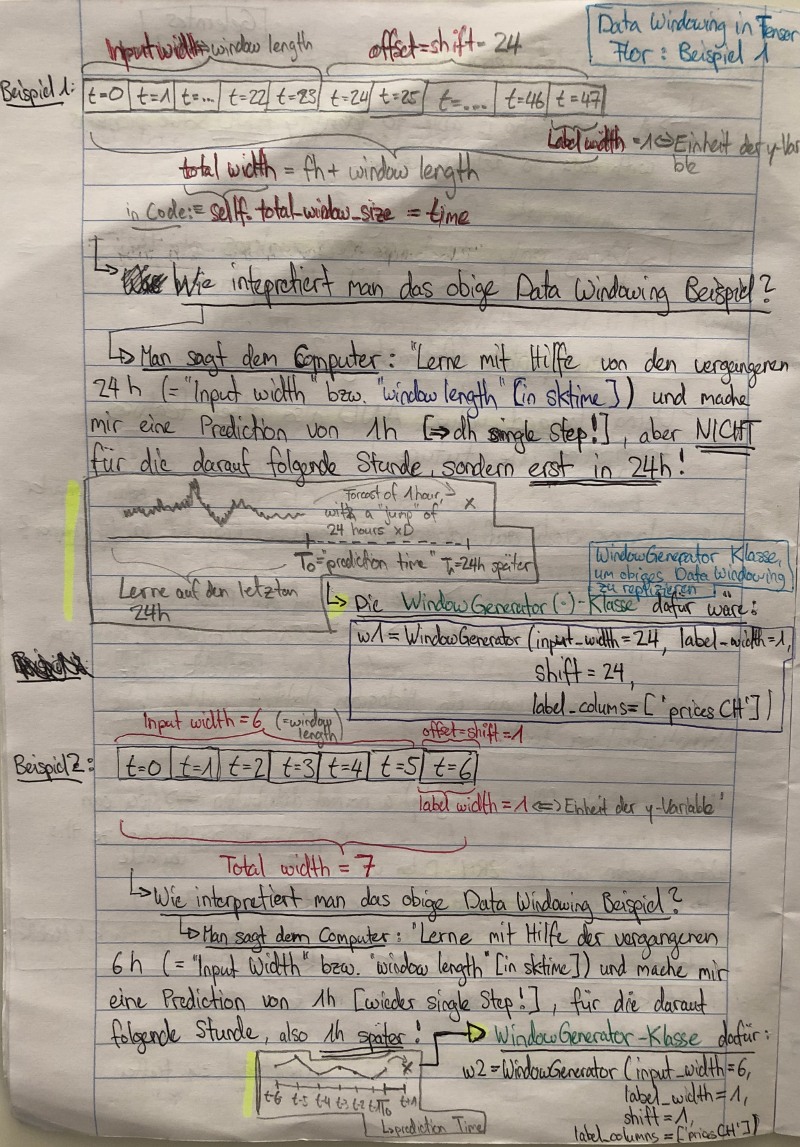 Data Windowing in Tensor
Flor: Beispiel 1
Input width ≙ window length
offset = shift = 24
Beispiel 1:
t=0 t=1 t=... t=22 t=23 t=24 t=25 t=.... t=46 t=47
Label width = 1 ⇔ Einheit der y-Var
ble
total width = fh + window length
in Code: = self. total_window_size = time
↳ Wie intepretiert man das obige Data Windowing Beispiel?
↳ Man sagt dem Computer: "Lerne mit Hilfe von den vergangenen
24h (= "Input width" bzw. "window length" [in sktime]) und mache
mir eine Prediction von 1h [⇒ dh single Step!], aber NICHT
für die darauf folgende Stunde, sondern erst in 24h!
Forcast of 1 hour,
with a "jump" of
24 hours xD
x
T₀ = "prediction time"
= 24h später
Lerne auf den letzten
24h
WindowGenerator Klasse,
um obiges Data Windowing
zu replizieren
↳ Die WindowGenerator(·)-Klasse dafür wäre:
w1 = WindowGenerator (input_width=24, label_width=1,
shift = 24,
label_colums= ['prices CH'])
Input width = 6 (= window
length)
offset = shift = 1
Beispiel 2:
t=0 t=1 t=2 t=3 t=4 t=5 t=6
label width = 1 ⇔ Einheit der y-Variable
Total width = 7
↳ Wie interpretiert man das obige Data Windowing Beispiel?
↳ Man sagt dem Computer: "Lerne mit Hilfe der vergangenen
6h (= "Input Width" bzw. "window length" [in sktime]) und mache mir
eine Prediction von 1h [wieder single Step!], für die darauf
folgende Stunde, also 1h später!
WindowGenerator-Klasse dafür:
w2 = WindowGenerator (input_width=6,
label_width=1,
shift=1,
label_columns = ['prices CH'])
x
t-6 t-5 t-4 t-3 t-2 t-1 T₀ t+1
↳ prediction Time